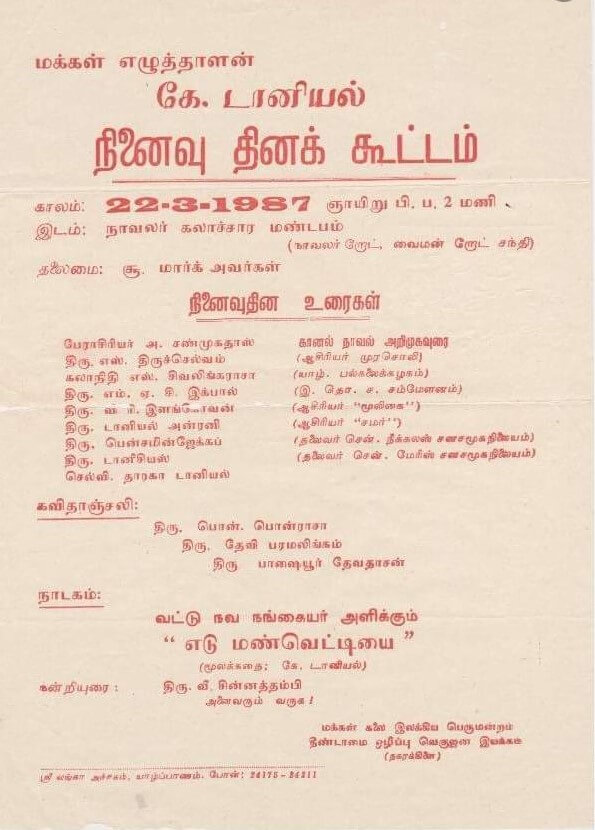 மக்கள் எழுத்தாளன்
கே. டானியல்
நினைவு தினக் கூட்டம்
காலம்: 22-3-1987 ஞாயிறு பி. ப. 2 மணி
இடம்: நாவலர் கலாச்சார மண்டபம்
(நாவலர் றோட், வைமன் றோட் சந்தி)
தலைமை: சூ. மார்க் அவர்கள்
நினைவுதின உரைகள்
பேராசிரியர் அ. சண்முகதாஸ் கானல் நாவல் அறிமுகவுரை
திரு. எஸ். திருச்செல்வம் (ஆசிரியர் முரசொலி)
கலாநிதி எஸ். சிவலிங்கராசா (யாழ். பல்கலைக்கழகம்)
திரு. எம். ஏ. சி. இக்பால் (இ. தொ. ச. சம்மேளனம்)
திரு. வி. ரி. இளங்கோவன் (ஆசிரியர் "மூலிகை")
திரு. டானியல் அன்ரனி (ஆசிரியர் "சமர்")
திரு. பென்சமின்ஜேக்கப் (தலைவர் சென். நீக்கலஸ் சனசமூகநிலையம்)
திரு. டானிசியஸ் (தலைவர் சென். மேரிஸ் சனசமூகநிலையம்)
செல்வி. தாரகா டானியல்
கவிதாஞ்சலி:
திரு. பொன். பொன்ராசா
திரு. தேவி பரமலிங்கம்
திரு பாஷையூர் தேவதாசன்
நாடகம்:
வட்டு நவ நங்கையர் அளிக்கும்
" எடு மண்வெட்டியை "
(மூலக்கதை; கே. டானியல்)
நன்றியுரை : திரு. வீ. சின்னத்தம்பி
அனைவரும் வருக !
மக்கள் கலை இலக்கிய பெருமன்றம்
தீண்டாமை ஒழிப்பு வெகுஜன இயக்கம்
(நகரக்கிளை)
ஸ்ரீ லங்கா அச்சகம், யாழ்ப்பாணம். போன்: 24175 - 24211